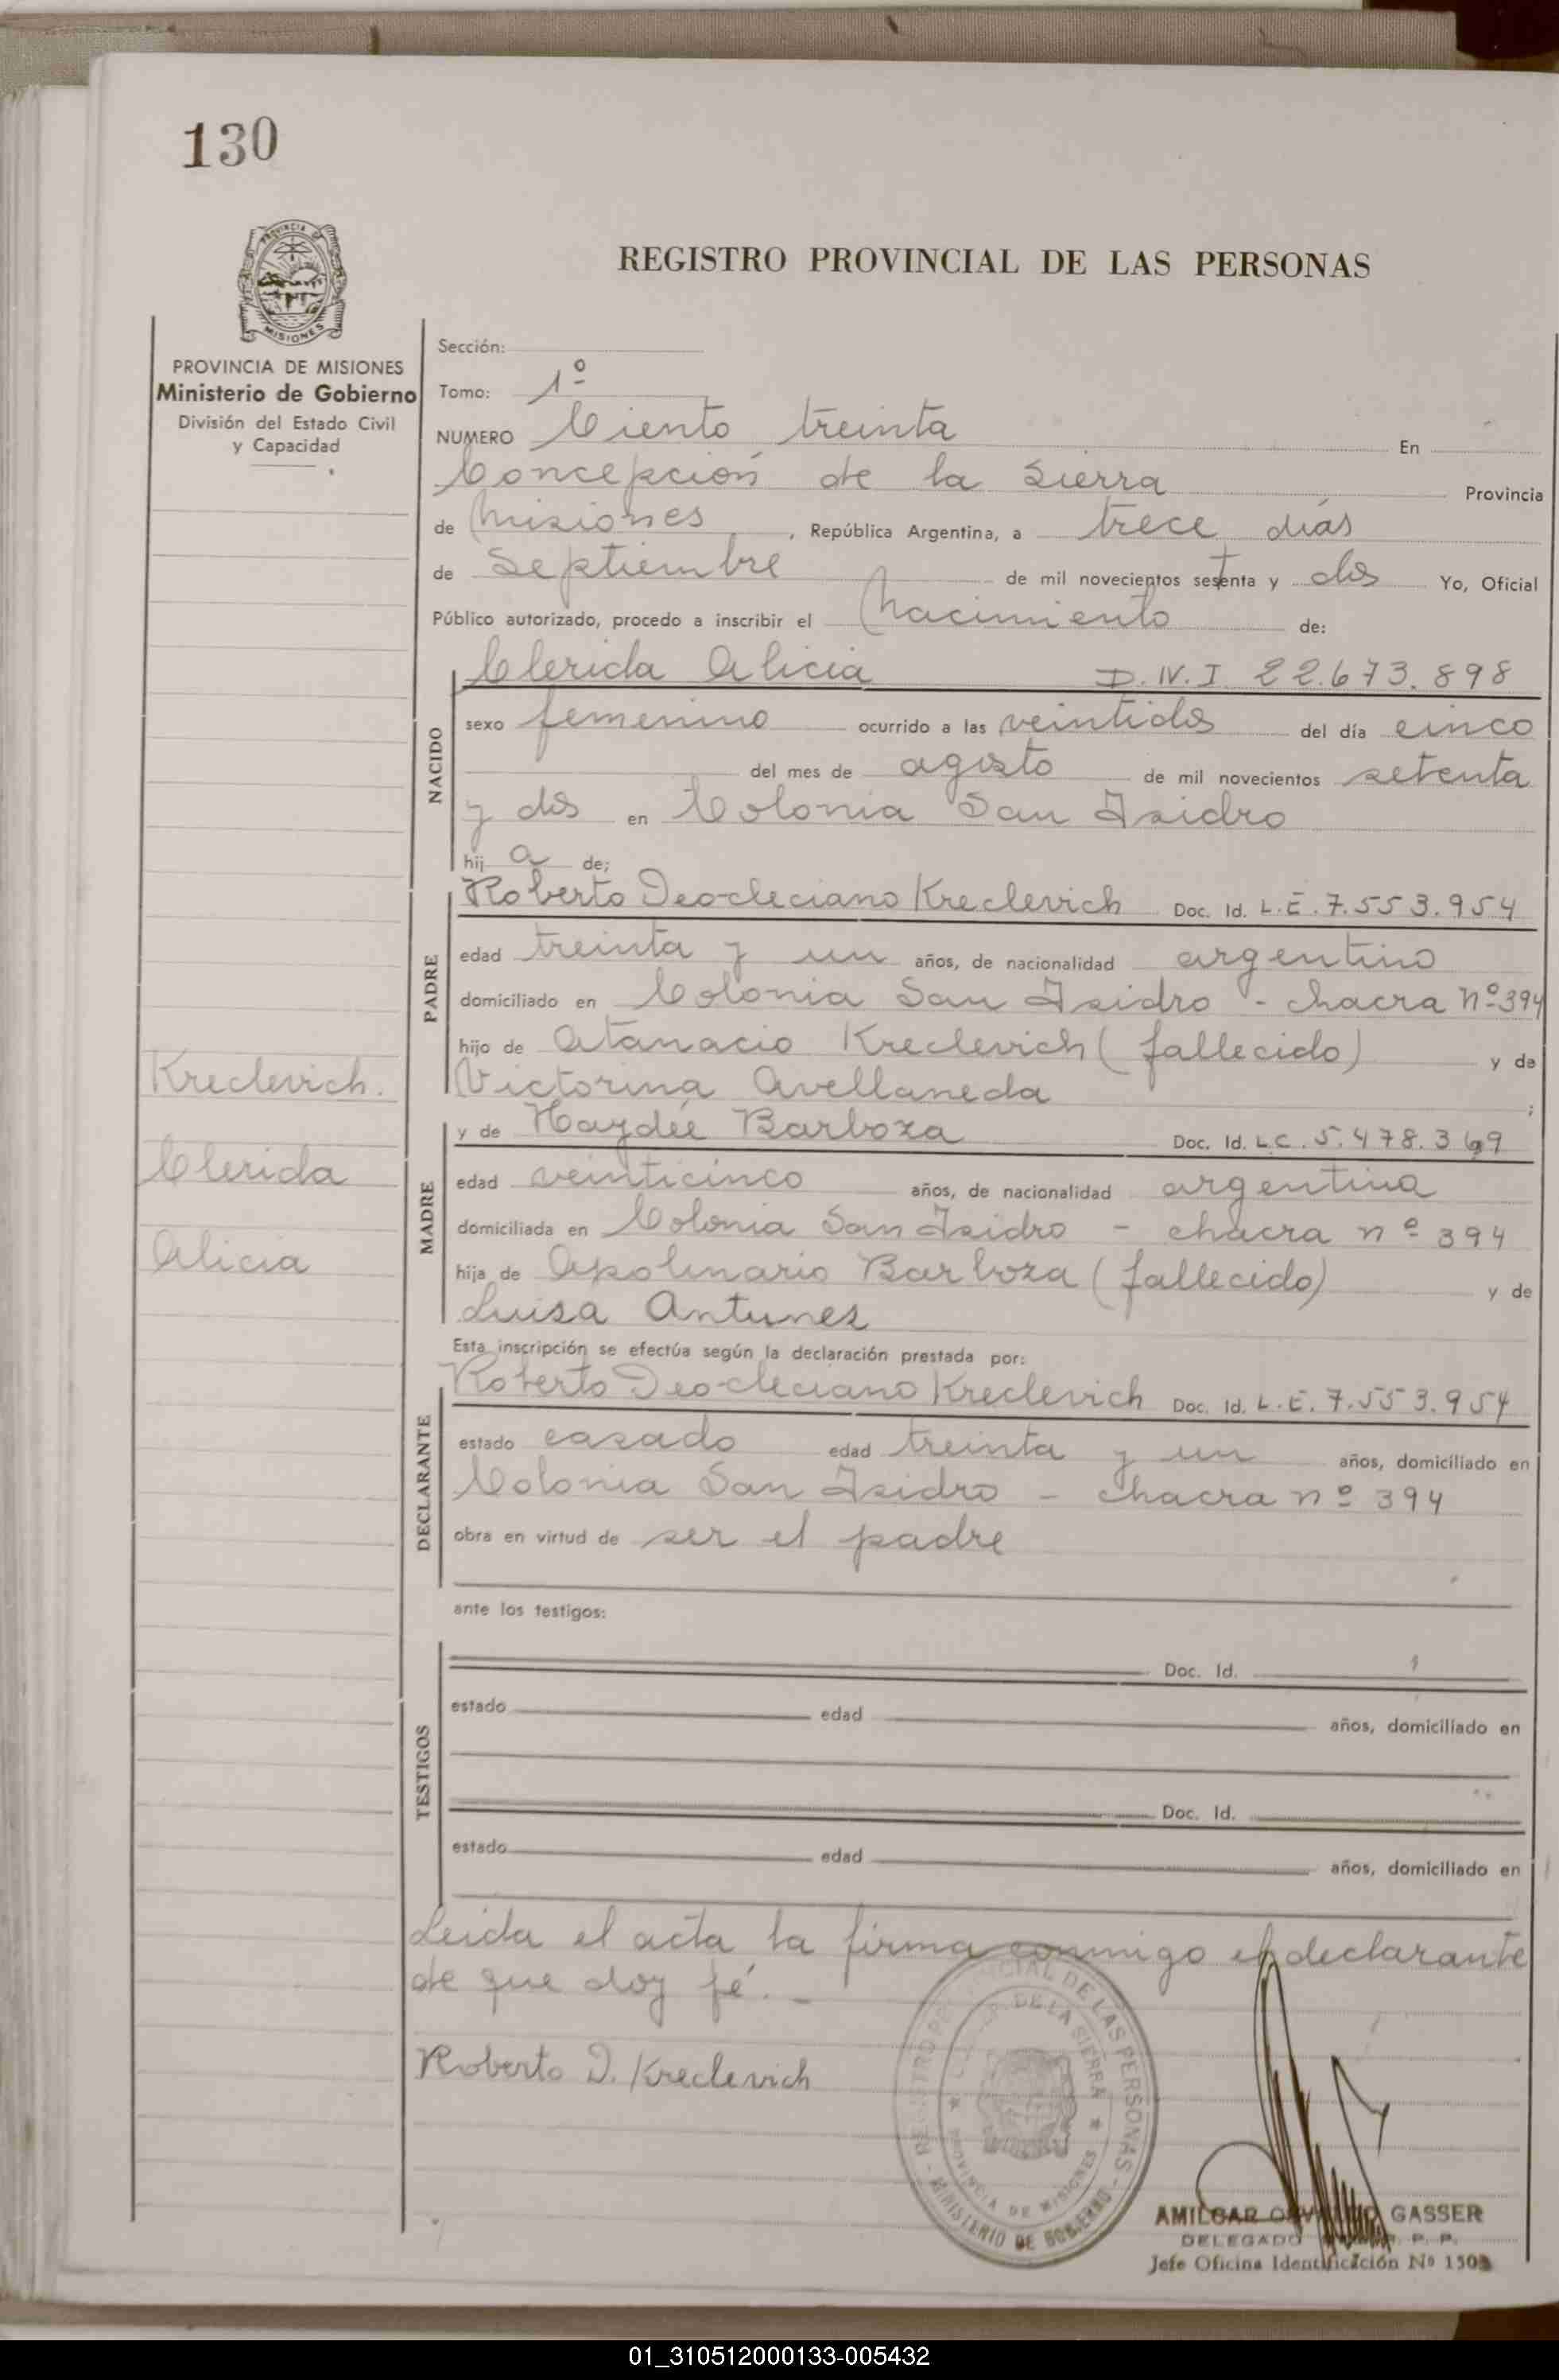 130
REGISTRO PROVINCIAL DE LAS PERSONAS
PROVINCIA DE MISIONES
Ministerio de Gobierno
División del Estado Civil
y Capacidad
Sección:
Tomo: 1º
NUMERO Ciento treinta En
Concepción de la Sierra Provincia
de Misiones, República Argentina, a trece días
de Septiembre de mil novecientos setenta y dos Yo, Oficial
Público autorizado, procedo a inscribir el Nacimiento de:
NACIDO
Clerida Alicia D.N.I 22.673.898
sexo femenino ocurrido a las veintidos del día cinco
del mes de agosto de mil novecientos setenta
y dos en Colonia San Isidro
hij a de;
PADRE
Roberto Deocleciano Kreclevich Doc. Id. L.E. 7.553.954
edad treinta y un años, de nacionalidad argentino
domiciliado en Colonia San Isidro - chacra nº 394
hijo de Atanacio Kreclevich (fallecido) y de
Victorina Avellaneda ;
Kreclevich.
Clerida
Alicia
MADRE
y de Haydée Barboza Doc. Id. L.C. 5.478.369
edad veinticinco años, de nacionalidad argentina
domiciliada en Colonia San Isidro - chacra nº 394
hija de Apolinario Barboza (fallecido) y de
Luisa Antunez
Esta inscripción se efectúa según la declaración prestada por:
DECLARANTE
Roberto Deocleciano Kreclevich Doc. Id. L.E. 7.553.954
estado casado edad treinta y un años, domiciliado en
Colonia San Isidro - chacra nº 394
obra en virtud de ser el padre
ante los testigos:
TESTIGOS
Doc. Id.
estado edad años, domiciliado en
Doc. Id.
estado edad años, domiciliado en
Leida el acta la firma conmigo el declarante
de que doy fé. -
Roberto D. Kreclevich
DE LAS PERSONAS - MINISTERIO DE GOBIERNO
DE LA SIERRA
PROVINCIA DE MISIONES
AMILCAR GASSER
DELEGADO P. P.
Jefe Oficina Identificación Nº
01_310512000133-005432